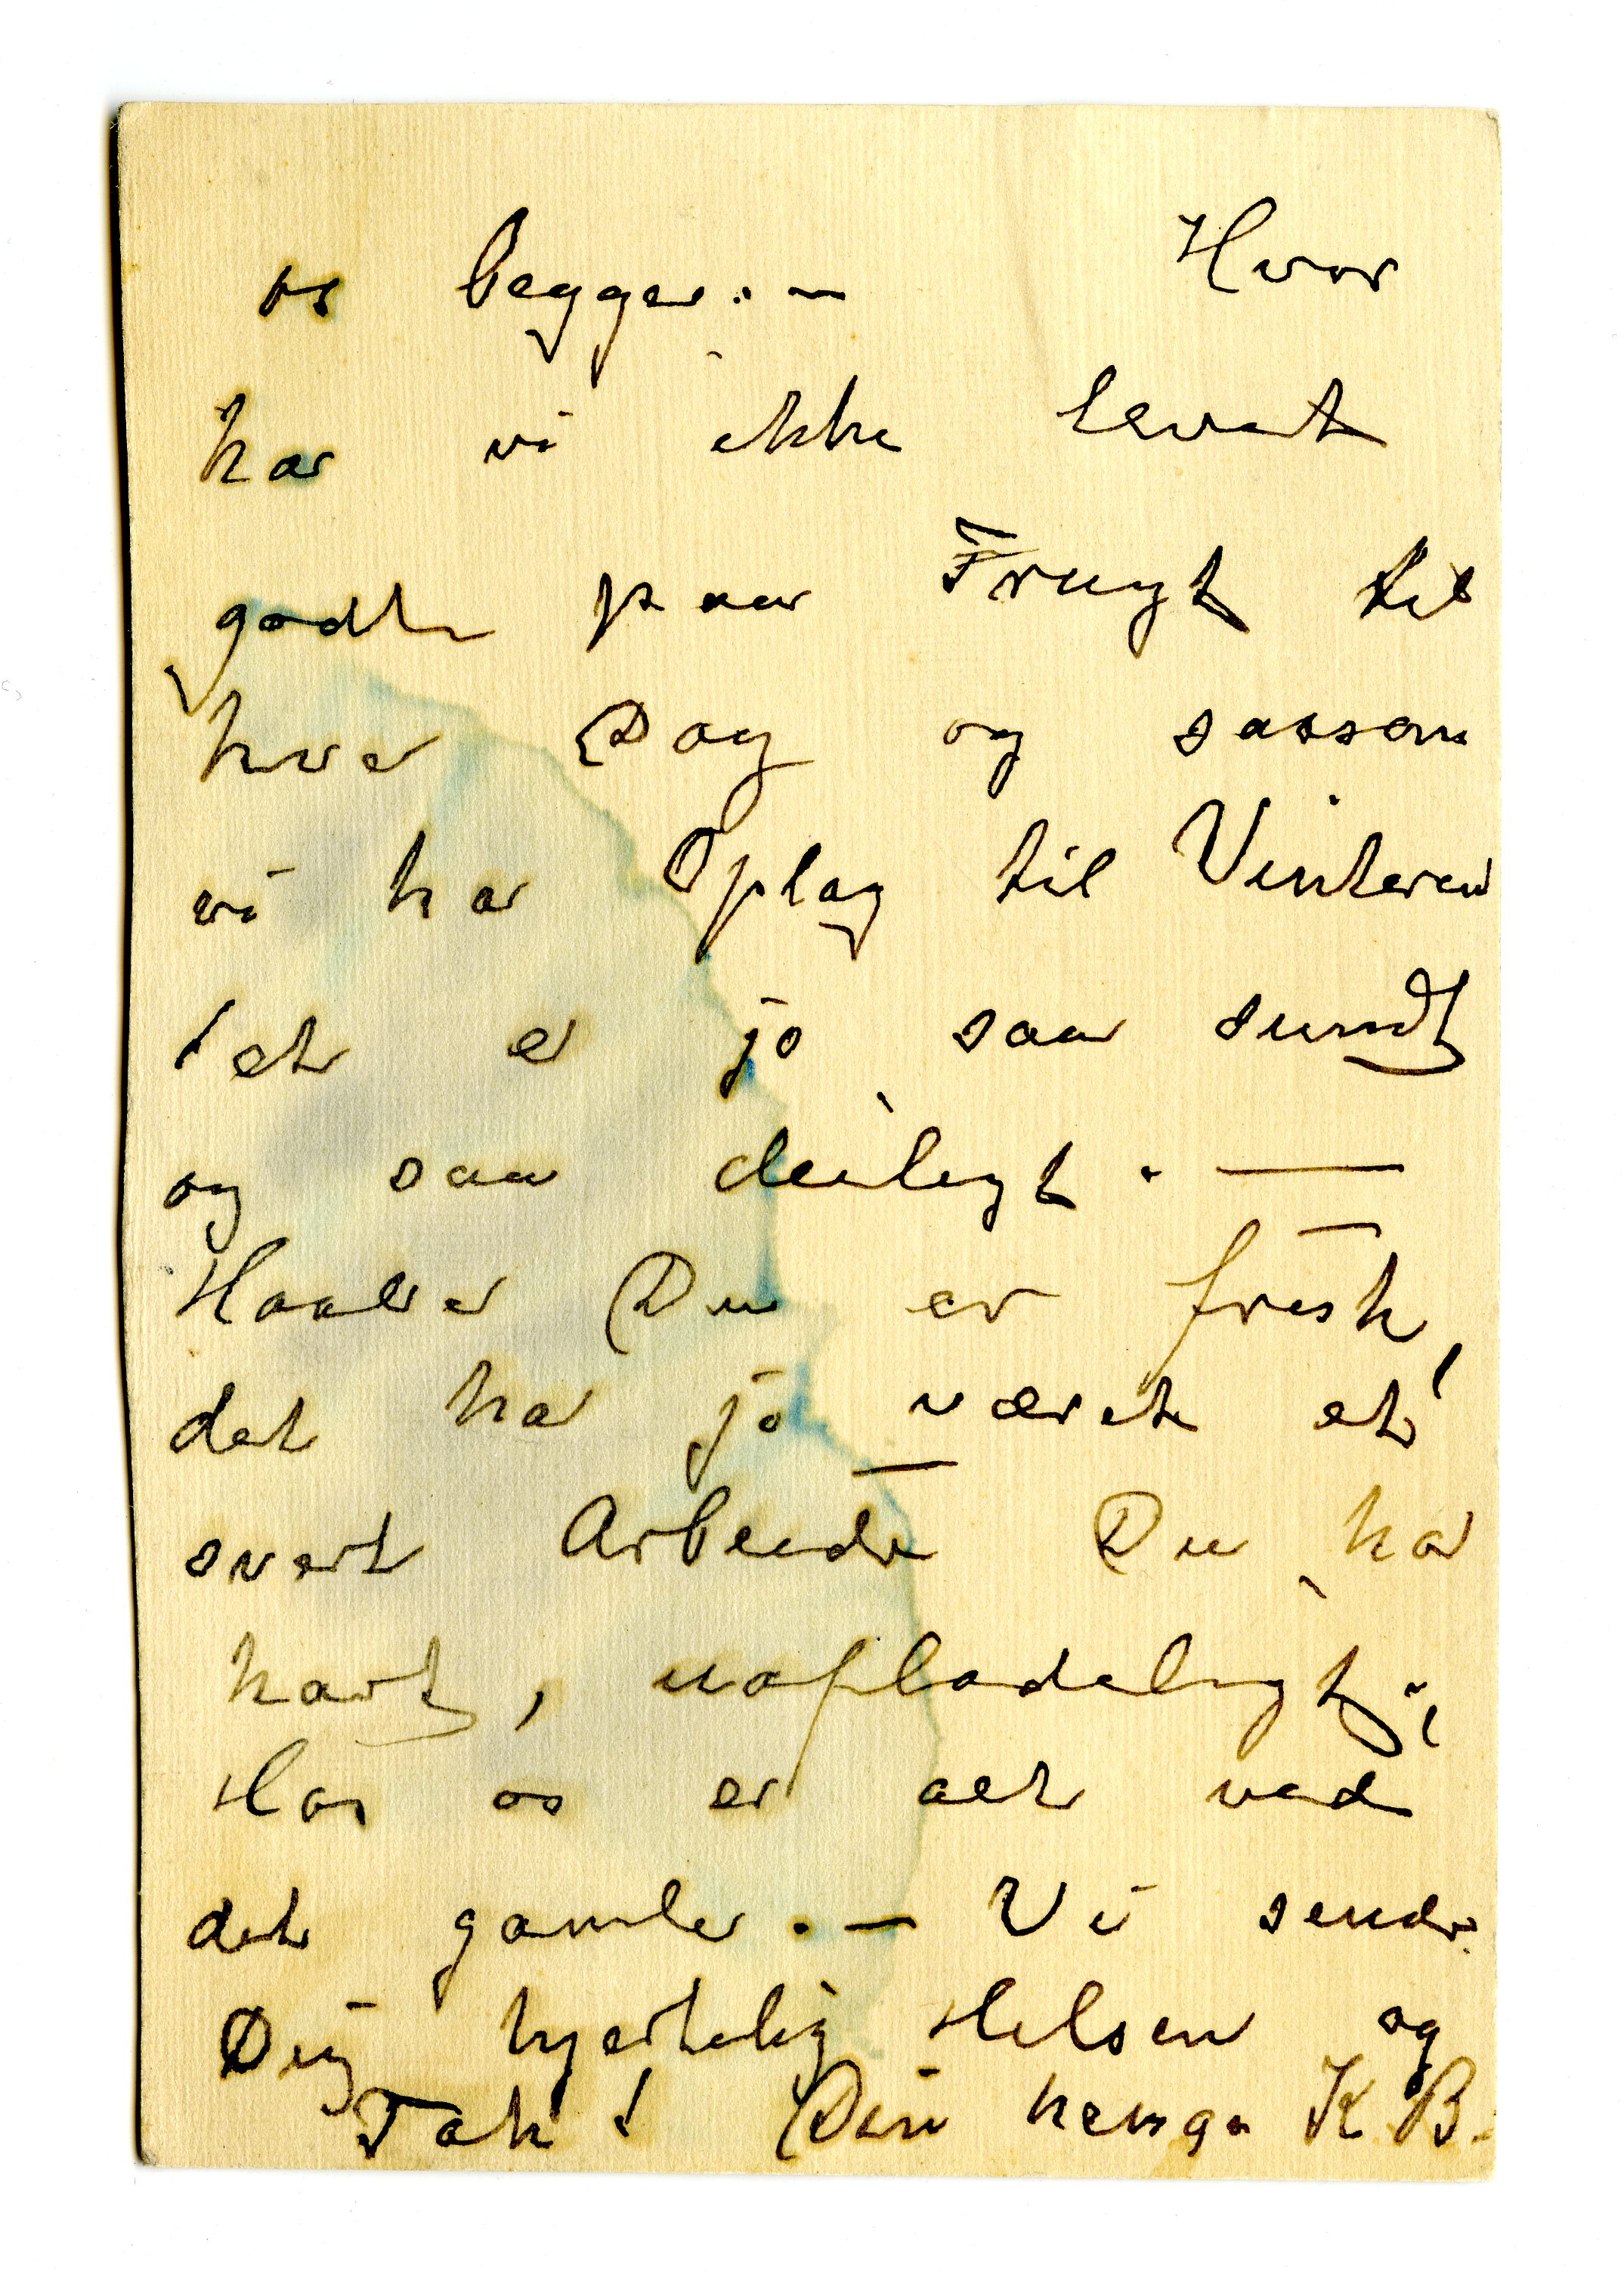 os begge. —   Hvor
har vi ikke levet
godt paa Frugt til
hver Dag og saasom
vi har Oplag til Vinteren
det er jo saa sundt
og saa deiligt. —
Haaber Du er frisk,
det har jo været et
svert Arbeide Du har
havt, uopladeligt;
Hos os er alt ved
det gamle. — Vi sender
Dig hjertelig Hilsen og
Tak! Din hengn K B.